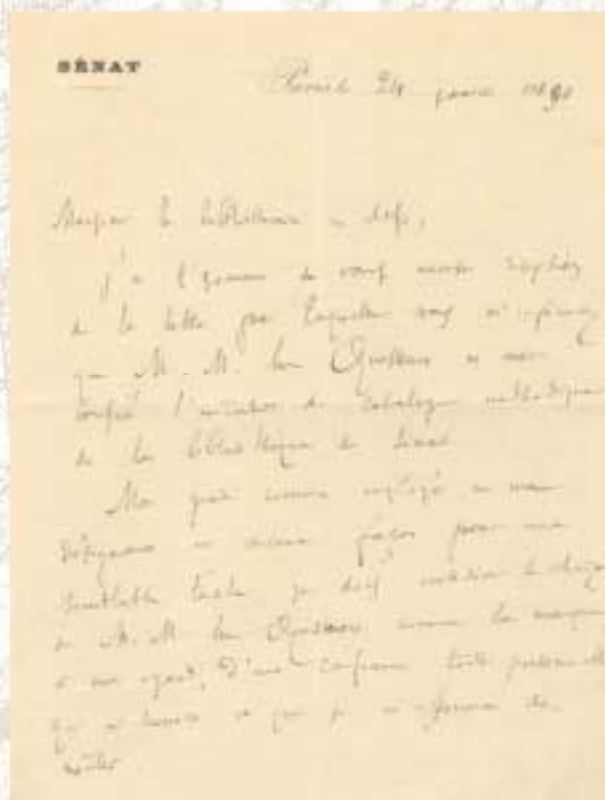 SÉNAT
Paris 24 janvier 1890
Monsieur le bibliothécaire en chef,
J'ai l'honneur de vous
de la lettre par laquelle vous m'informez
que M.M. les Questeurs
confié du catalogue méthodique
de la bibliothèque du Sénat
Mon grade comme employé
désignant en aucune façon pour une
semblable tâche je dois considérer le choix
de M.M. les Questeurs comme la marque
à mon égard, d'une confiance toute personnelle
qui m'honore et que je m'efforcerai de
mériter.